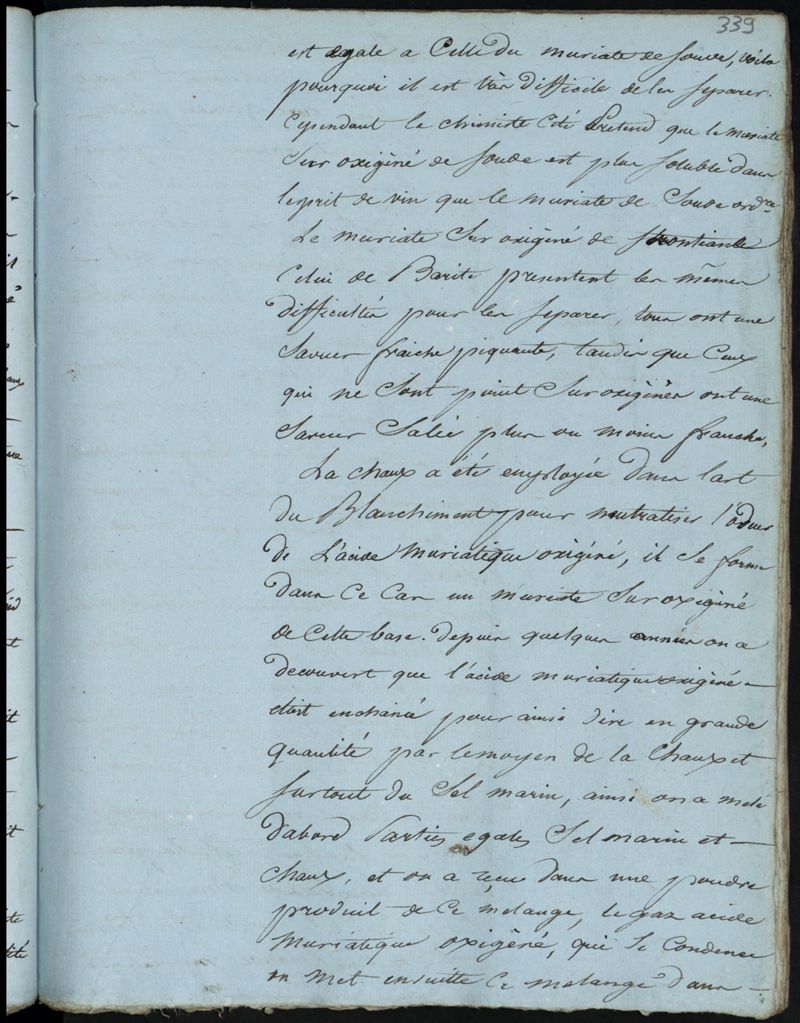 339
est egale a Celle du muriate de soude, voila
pourquoi il est très difficile de les separer.
Cependant le chimiste Cité Pretend que le muriate
Sur oxigèné de soude est plus soluble dans
l'esprit de vin que le muriate de Soude ord.re
Le muriate Sur oxigèné de strontiane &
Celui de Barite presentent les mêmes
difficultés pour les separer, tous ont une
Saveur fraiche piquante, tandis que Ceux
qui ne Sont point Suroxigènés ont une
Saveur Salée plus ou moins franche,
La chaux a été employée dans l'art
du Blanchiment pour neutraliser l'odeur
de L'acide Muriatique oxigèné, il Se forme
dans Ce Cas un muriate Sur oxigèné
de Cette base. depuis quelques années on a
decouvert que l'acide muriatique oxigèné
étoit enchainé pour ainsi dire en grande
quantité par le moyen de la Chaux et
surtout du Sel marin, ainsi on a melé
d'abord Parties egales Sel marin et
chaux, et on a reçu dans une poudre
produit de Ce mélange, le gaz acide
Muriatique oxigèné, qui Se Condense
on met ensuitte Ce melange dans